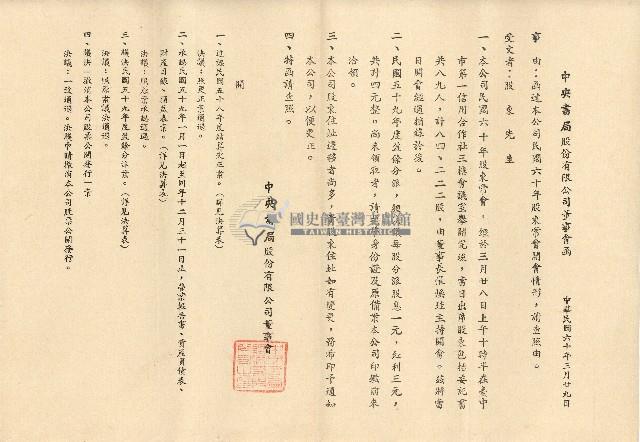 中央書局股份有限公司董事會函
中華民國六十年三月廿九日
事由：函達本公司民國六十年股東常會開會情形，請查照由。
受文者：股東先生
一、本公司民國六十年股東常會，經於三月廿八日上午十時半在臺中
市第一信用合作社三樓會議室舉開完竣，當日出席股東包括委託書
共八九人，計八四、二二二股，由董事長張煥珪主持開會。茲將當
日開會經過摘錄於後。
二、民國五十九年度盈餘分派，經決議每股分派股息一元，紅利三元，
共計四元整。尚未領取者，請攜帶身份證及原備案本公司印鑑前來
洽領。
三、本公司股東住址遷移者尚多，貴股東住址如有變更，務希即予通知
本公司，以便更正。
四、特函請查照。
中央書局股份有限公司董事會
開
一、追認民國五十八年度結算更正案。（詳見決算表）
決議：照更正案通過。
二、承認民國五十九年一月一日起至同年十二月三十一日止，營業報告書、資產負債表、
財產目錄、損益表案。（詳見決算表）
決議：照原案承認通過。
三、議決民國五十九年度盈餘分派案。（詳見決算表）
決議：照原案議決通過。
四、議決撤銷本公司股票公開發行一案
決議：一致通過。決議申請撤銷本公司股票公開發行。
國史館臺灣文獻館
TAIWAN HISTORICA